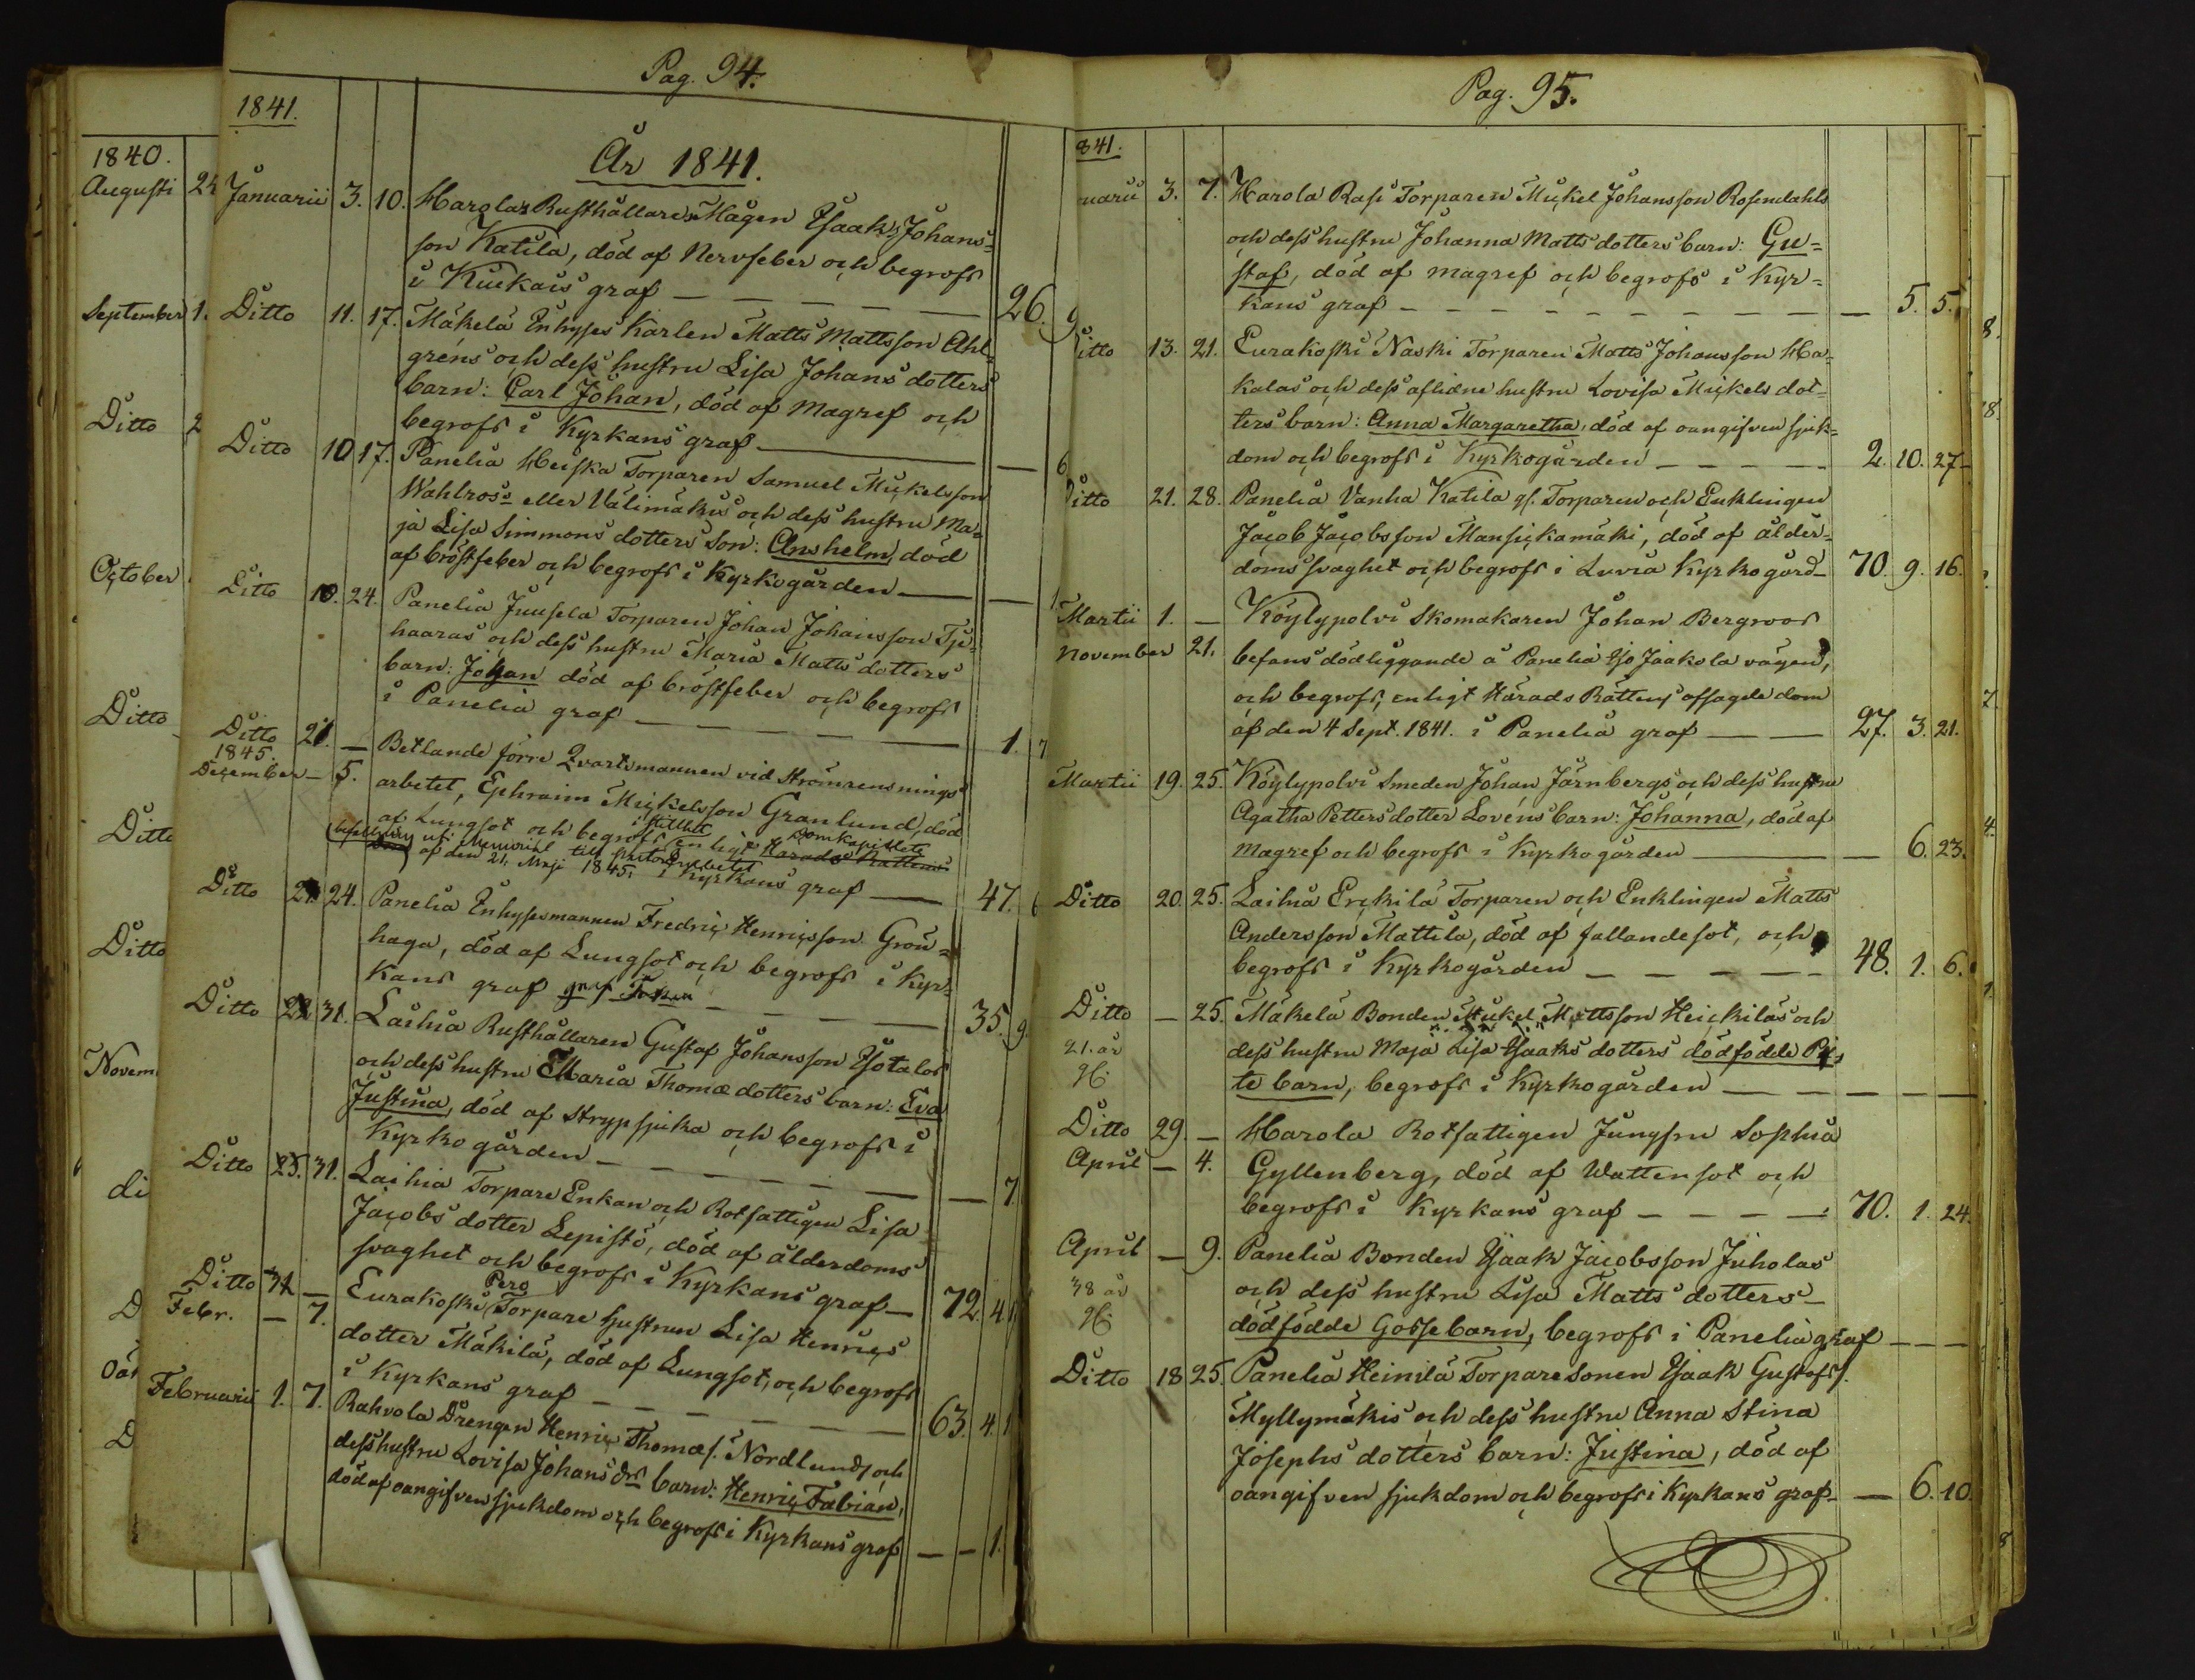 Pag. 94.
1841.
År 1841.
Januarii 3. 10. Harola Rusthållare Mågen Isaak Johans=
son Katila, död af Nervfeber och begrofs
i Kiukais graf — — — — 26. 9
Ditto 11. 17. Mäkelä Inhyses Karlen Matts Mattsson Ahl=
gréns och dess hustru Lisa Johans dotters
barn: Carl Johan, död af Magref och
begrofs i Kyrkans graf — — 6
Ditto 10 17. Panelia Heiska Torparen Samuel Mickelsson
Wahlros's eller Välimäkis och dess hustru Ma=
ja Lisa Simmons dotters Son: Anshelm, död
af bröstfeber och begrofs i Kyrkogården — — 1
Ditto 18. 24. Panelia Juusela Torparen Johan Johansson Tji=
haaras och dess hustru Maria Matts dotters
barn: Johan död af bröstfeber och begrofs
i Panelia graf — — — 1. 7
Ditto 21. — Betlande förre Qvartsmannen vid Strömrensnings
1845.
December — 5. arbetet, Ephraim Mickelsson Granlund, död
af Lungsot och begrofs i stillhet enligt Domkapitlets Härads Rättens
befallning uti Memorial till Pastors Embetet
Dom af den 21. Maji 1845. i Kyrkans graf — 47. 6
Ditto 21 24. Panelia Inhysesmannen Fredric Henricsson Grön=
haga, död af Lungsot och begrofs i Kyr=
kans graf — — — 35. 9
Ditto 22 31. Laihia Rusthållaren Gustaf Johansson Isotalos
och dess hustru Maria Thomæ dotters barn: Eva
Justina, död af Strypsjuka och begrofs i
Kyrko gården — — — — 7.
Ditto 25. 31. Laihia Torpare Enkan och Rotfattigen Lisa
Jacobs dotter Lepistö, död af ålderdoms
svaghet och begrofs i Kyrkans graf — 72. 4. 1
Ditto 31. — Eurakoski Pero Torpare hustrun Lisa Henrics
Febr. — 7. dotter Mäkilä, död af Lungsot, och begrofs
i Kyrkans graf — — — 63. 4. 1
Februarii 1. 7. Rahvola Drengen Henric Thomæs. Nordlunds och
dess hustru Lovisa Johans drs barn: Henric Fabian,
död af oangifven sjukdom och begrofs i Kyrkans graf — — 1.
1840.
Augusti 24
September 1.
Ditto 2
October
Ditto
Ditto
Ditto
Novem
di
D
D
Pag. 95.
841.
uarii 3. 7. Harola Rasi Torparen Mickel Johansson Rosendahls
och dess hustru Johanna Matts dotters barn: Gu=
staf, död af magref och begrofs i Kyr=
kans graf — — — — 5. 5.
Ditto 13. 21. Eurakoski Naski Torparen Matts Johansson Ha=
kalas och dess aflidne hustru Lovisa Mickels dot=
ters barn: Anna Margaretha, död af oangifven sjuk=
dom och begrofs i Kyrkogården — — — 2. 10. 27
Ditto 21. 28. Panelia Vanha Katila gl. Torparen och Enklingen
Jacob Jacobsson Mansickamäki, död af ålder=
doms svaghet och begrofs i Luvia Kyrkogård — 70. 9. 16.
Martii 1. — Köylypolvi Skomakaren Johan Bergroos
November 21. befans dödliggande å Panelia Iso Jaakola vägen,
och begrofs, enligt Härads Rättens afsagde dom
af den 4 Sept. 1841. i Panelia graf — — 27. 3. 21.
Martii 19. 25. Köylypolvi Smeden Johan Järnbergs och dess hustru
Agatha Petters dotter Lovéns barn: Johanna, död af
Magref och begrofs i Kyrko gården — — 6. 23.
Ditto 20. 25. Laihia Erckilä Torparen och Enklingen Matts
Andersson Mattila, död af fallandesot, och
begrofs i Kyrkogården — — — 48. 1. 6.
Ditto — 25. Mäkelä Bonden Mickel Mattsson Heickiläs och
21. år dess hustru Maja Lisa Isaaks dotters dödfödde Pi=
te barn, begrofs i Kyrkogården — — — —
Ditto 29. — Harola Rotfattigen Jungfru Sophia
April — 4. Gyllenberg, död af Wattensot och
begrofs i Kyrkans graf — — — 70. 1. 24.
April — 9. Panelia Bonden Isaak Jacobsson Juholas
38 år och dess hustru Lisa Matts dotters
dödfödde Gosse barn, begrofs i Panelia graf — — —
Ditto 18 25. Panelia Heinilä Torpare Sonen Isaak Gustafs.
Myllymäkis och dess hustru Anna Stina
Josephs dotters barn: Justina, död af
oangifven sjukdom och begrofs i Kyrkans graf — — 6. 10